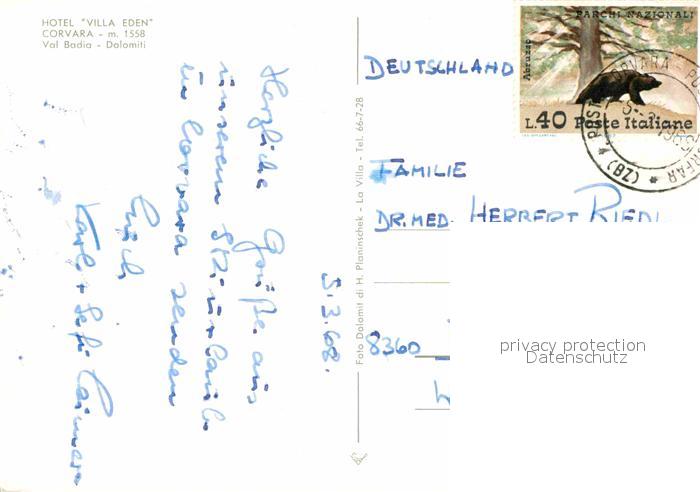 HOTEL "VILLA EDEN"
CORVARA - m. 1558
Val Badia - Dolomiti
5.3.68.
Herzliche Grüße aus
unserem Skiurlaub
in Corvara senden
Euch
Karl + Sefi
Foto Dolomit di H. Planinschek - La Villa - Tel. 66-7-28
PARCHI NAZIONALI
Abruzzo
L.40 Poste Italiane
CORVARA
DEUTSCHLAND
FAMILIE
DR.MED. HERBERT RIEDL
8360
privacy protection
Datenschutz